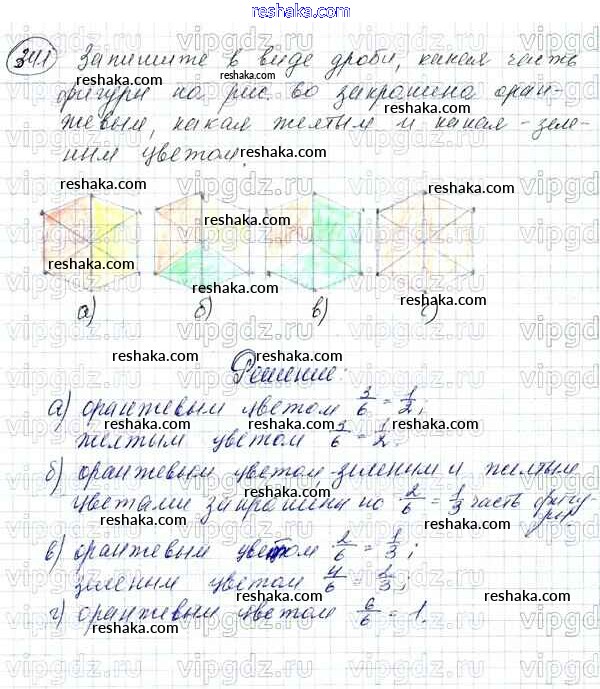 341 Запишите в виде дроби, какая часть
фигуры на рис. 60 закрашена оран-
жевым, какая желтым и какая - зеле-
ным цветом.
а) б) в) г)
Решение:
а) оранжевым цветом 3/6 = 1/2;
желтым цветом 3/6 = 1/2.
б) оранжевым цветом, зеленым и желтым
цветами закрашены по 2/6 = 1/3 часть фигу-
ры
в) оранжевым цветом 2/6 = 1/3;
зеленым цветом 4/6 = 2/3;
г) оранжевым цветом 6/6 = 1.
reshaka.com
vipgdz.ru